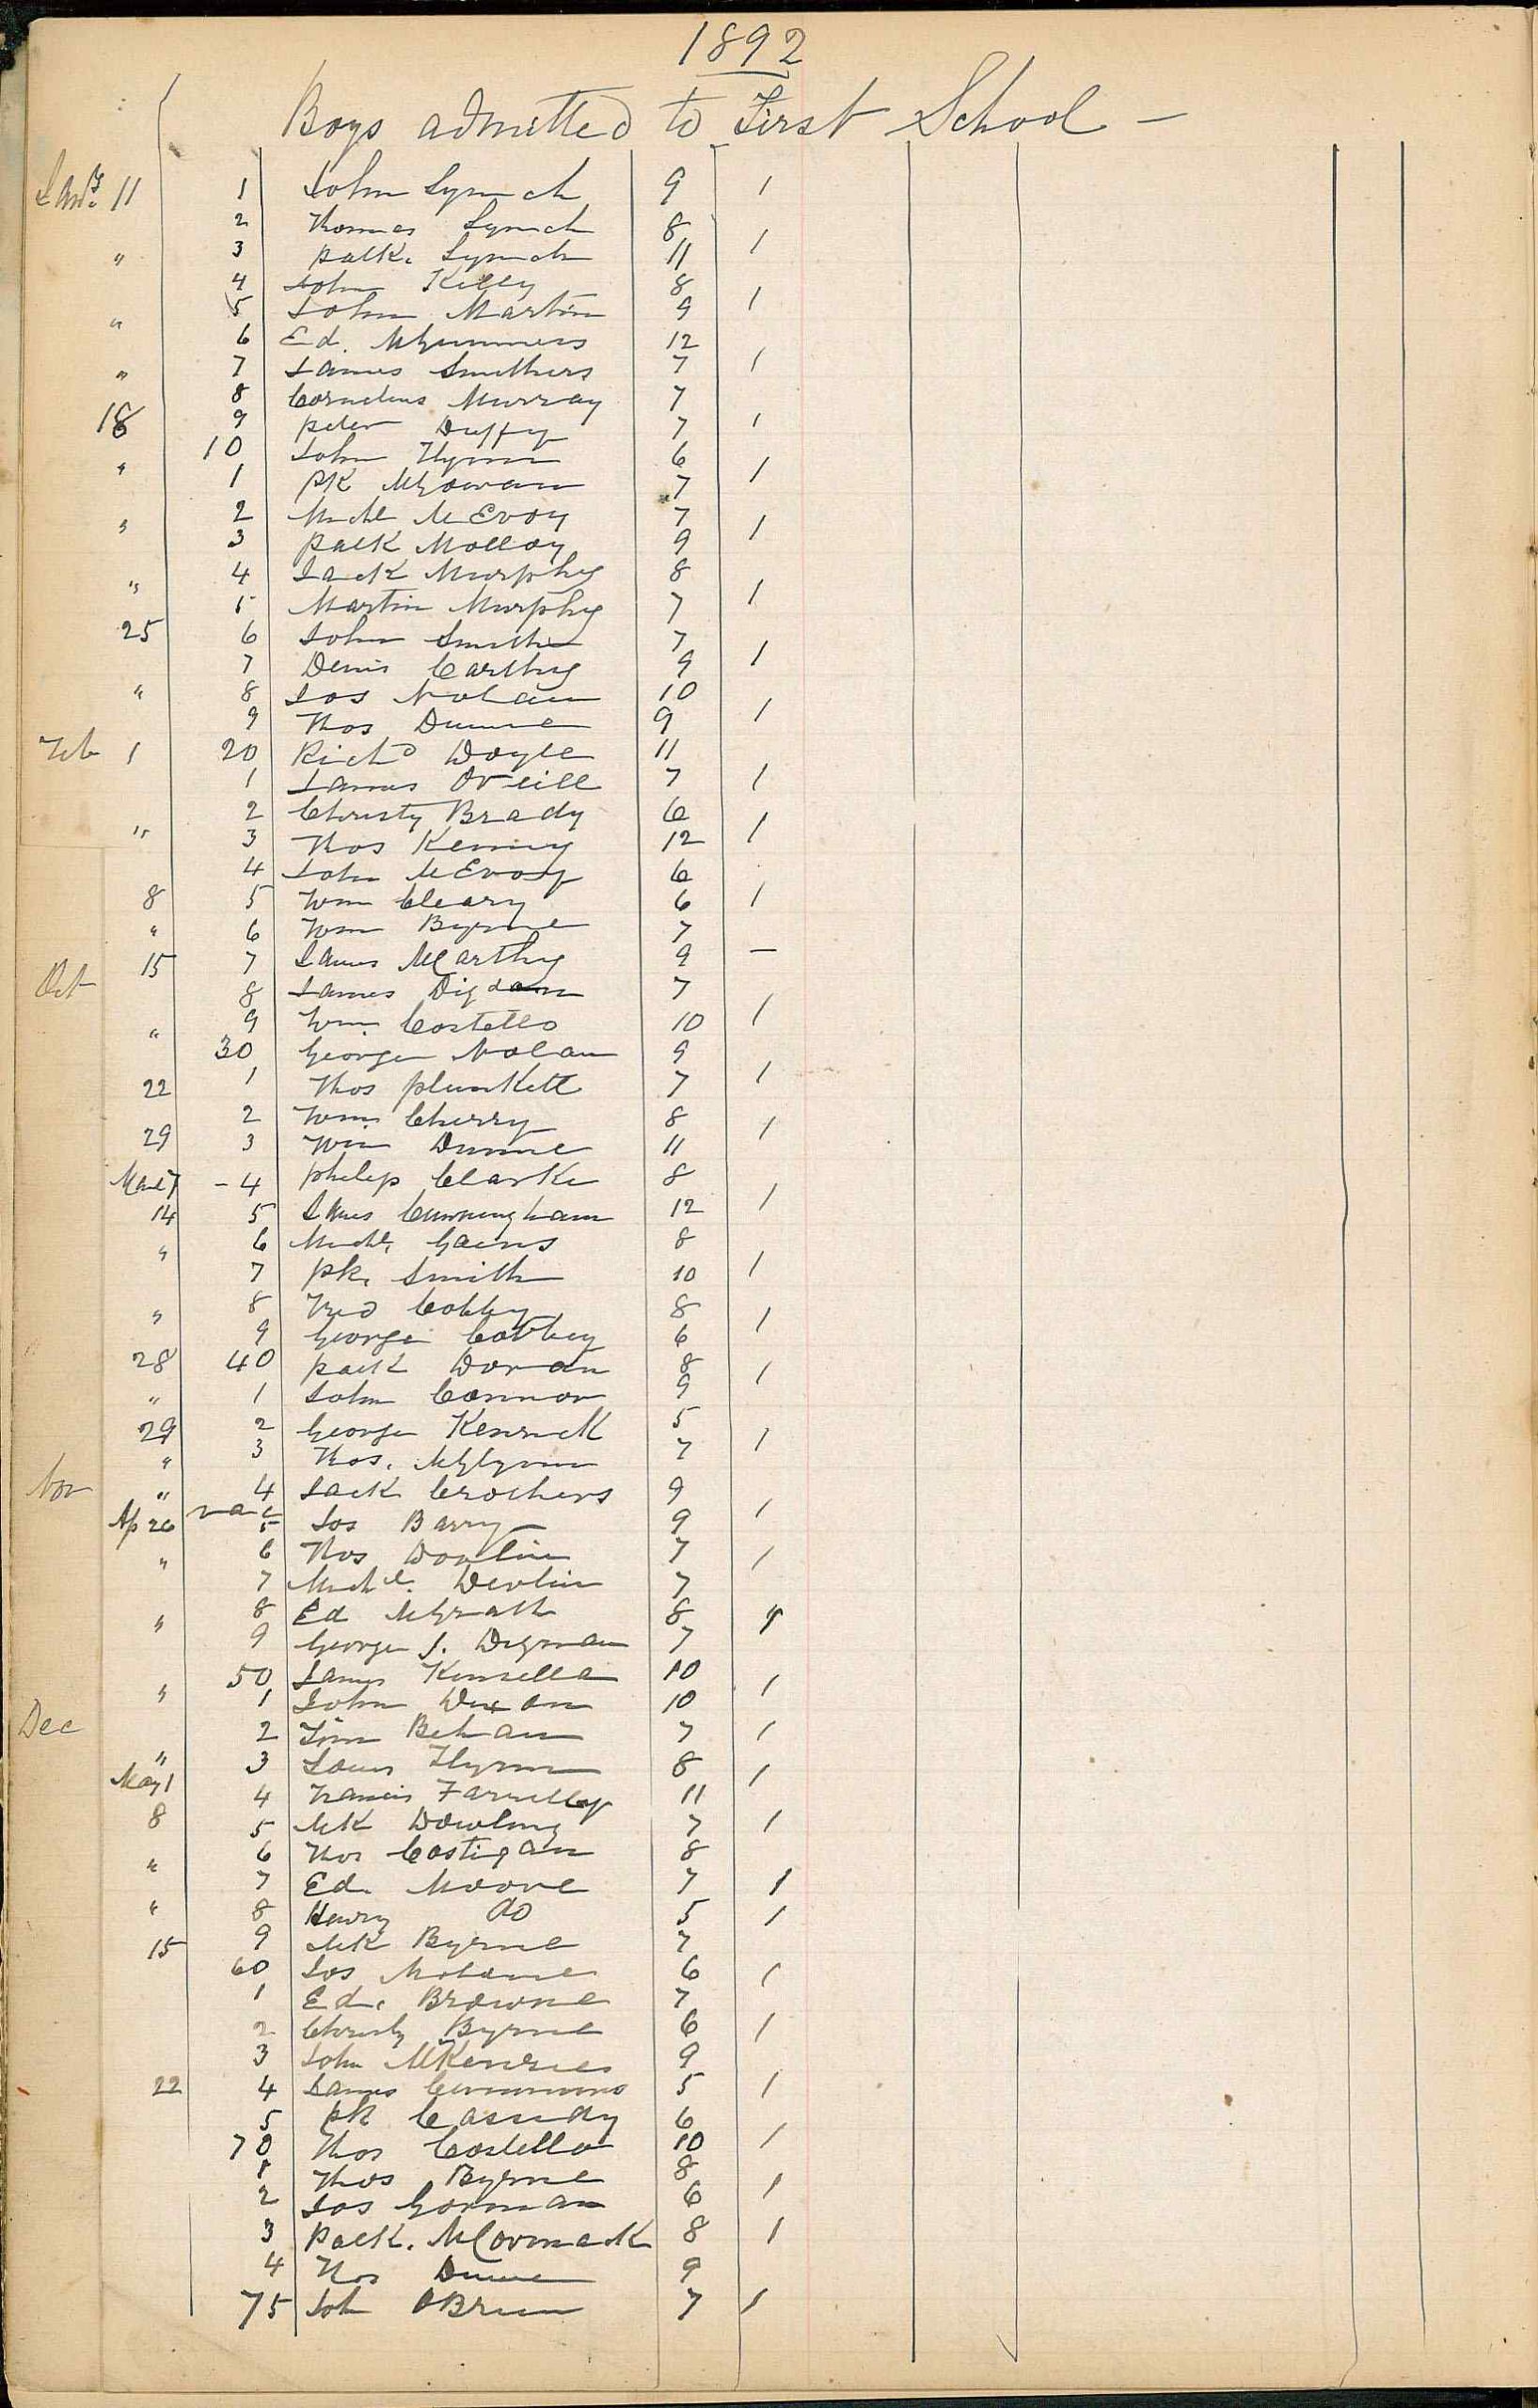 1892
Boys admitted to First School -
Jany. 11 1 John Lynch 9 1
2 Thomas Lynch 8
" 3 Patk. Lynch 11 1
4 John Kelly 8
5 John Martin 9 1
" 6 Ed. McGuinness 12
" 7 James Smithers 7 1
8 Cornelius Murray 7
18 9 Peter Duffy 7 1
10 John Flynn 6
" 1 Pk McGowan 7 1
2 Michl McEvoy 7
" 3 Patk Molloy 9 1
4 Jack Murphy 8
" 5 Martin Murphy 7 1
25 6 John Smith 7
7 Denis Carthy 9 1
" 8 Jos Nolan 10
9 Thos Dunne 9 1
Feb 1 20 Richd Doyle 11
1 James O'Neill 7 1
2 Christy Brady 6
" 3 Thos Kenny 12 1
4 John McEvoy 6
8 5 Wm Cleary 6 1
" 6 Wm Byrne 7
15 7 James McCarthy 9 -
Oct 8 James Digdam 7
" 9 Wm. Costello 10 1
30 George Nolan 9
22 1 Thos Plunkett 7 1
2 Wm. Cherry 8
29 3 Wm Dunne 11 1
Mar 7 - 4 Philip Clarke 8
14 5 James Cunningham 12 1
" 6 Michl. Gains 8
7 Pk. Smith 10 1
" 8 Fred Cobbey 8
9 George Cobbey 6 1
28 40 Patk Doran 8
" 1 John Connor 9 1
29 2 George Kenrick 5
" 3 Thos. McGlynn 7 1
Nov " 4 Jack Crothers 9
Ap 26 vac 5 Jos Barry 9 1
" 6 Thos Dowlin 7 1
7 Michl. Devlin 7
" 8 Ed McGrath 8 1
9 George J. Digman 7
" 50 James Kinsella 10 1
1 John Dixon 10
Dec 2 Tim Behan 7 1
" 3 James Flynn 8 1
May 1 4 Francis Farrelly 11
8 5 Mk Dowling 7 1
" 6 Thos Costigan 8
7 Ed. Moore 7 1
" 8 Henry do 5 1
15 9 Mk Byrne 7
60 Jos 6 1
1 Ed. Browne 7
2 Christy Byrne 6 1
3 John McKenzies 9
22 4 James Cummins 5 1
5 Pk Cassidy 6
70 Thos Costello 10 1
1 Thos Byrne 8
2 Jos Gorman 6 1
3 Patk. McCormack 8 1
4 Thos Dunne 9
75 Joh OBrien 7 1